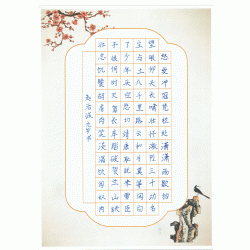 怒发冲冠凭栏处潇潇雨歇抬
望眼仰天长啸壮怀激烈三十功名
尘与土八千里路云和月莫等闲白
了少年头空悲切靖康耻犹未雪臣
子恨何时灭驾长车踏破贺兰山缺
壮志饥餐胡虏肉笑谈渴饮匈奴